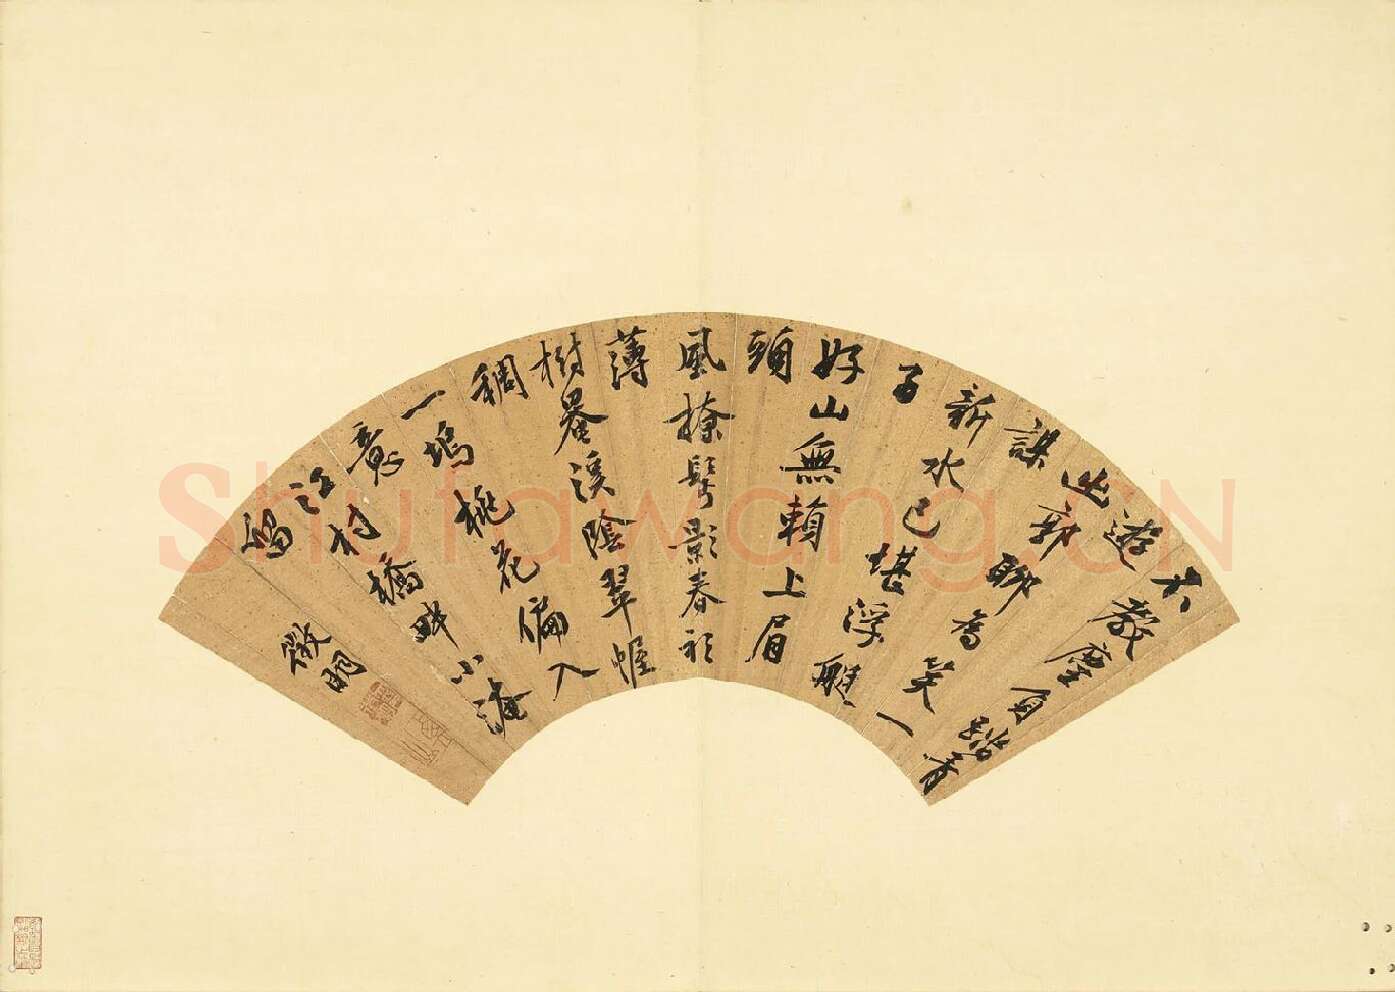 不教塵負踏青
遊
出郭聊為笑一
謀
新水已堪浮艇
子
好山無賴上眉
頭
風撩鬢影春衫
薄
樹罨溪陰翠幄
稠
一塢桃花偏入
意
江村橋畔小淹
留
徵明
Shufawang.CN